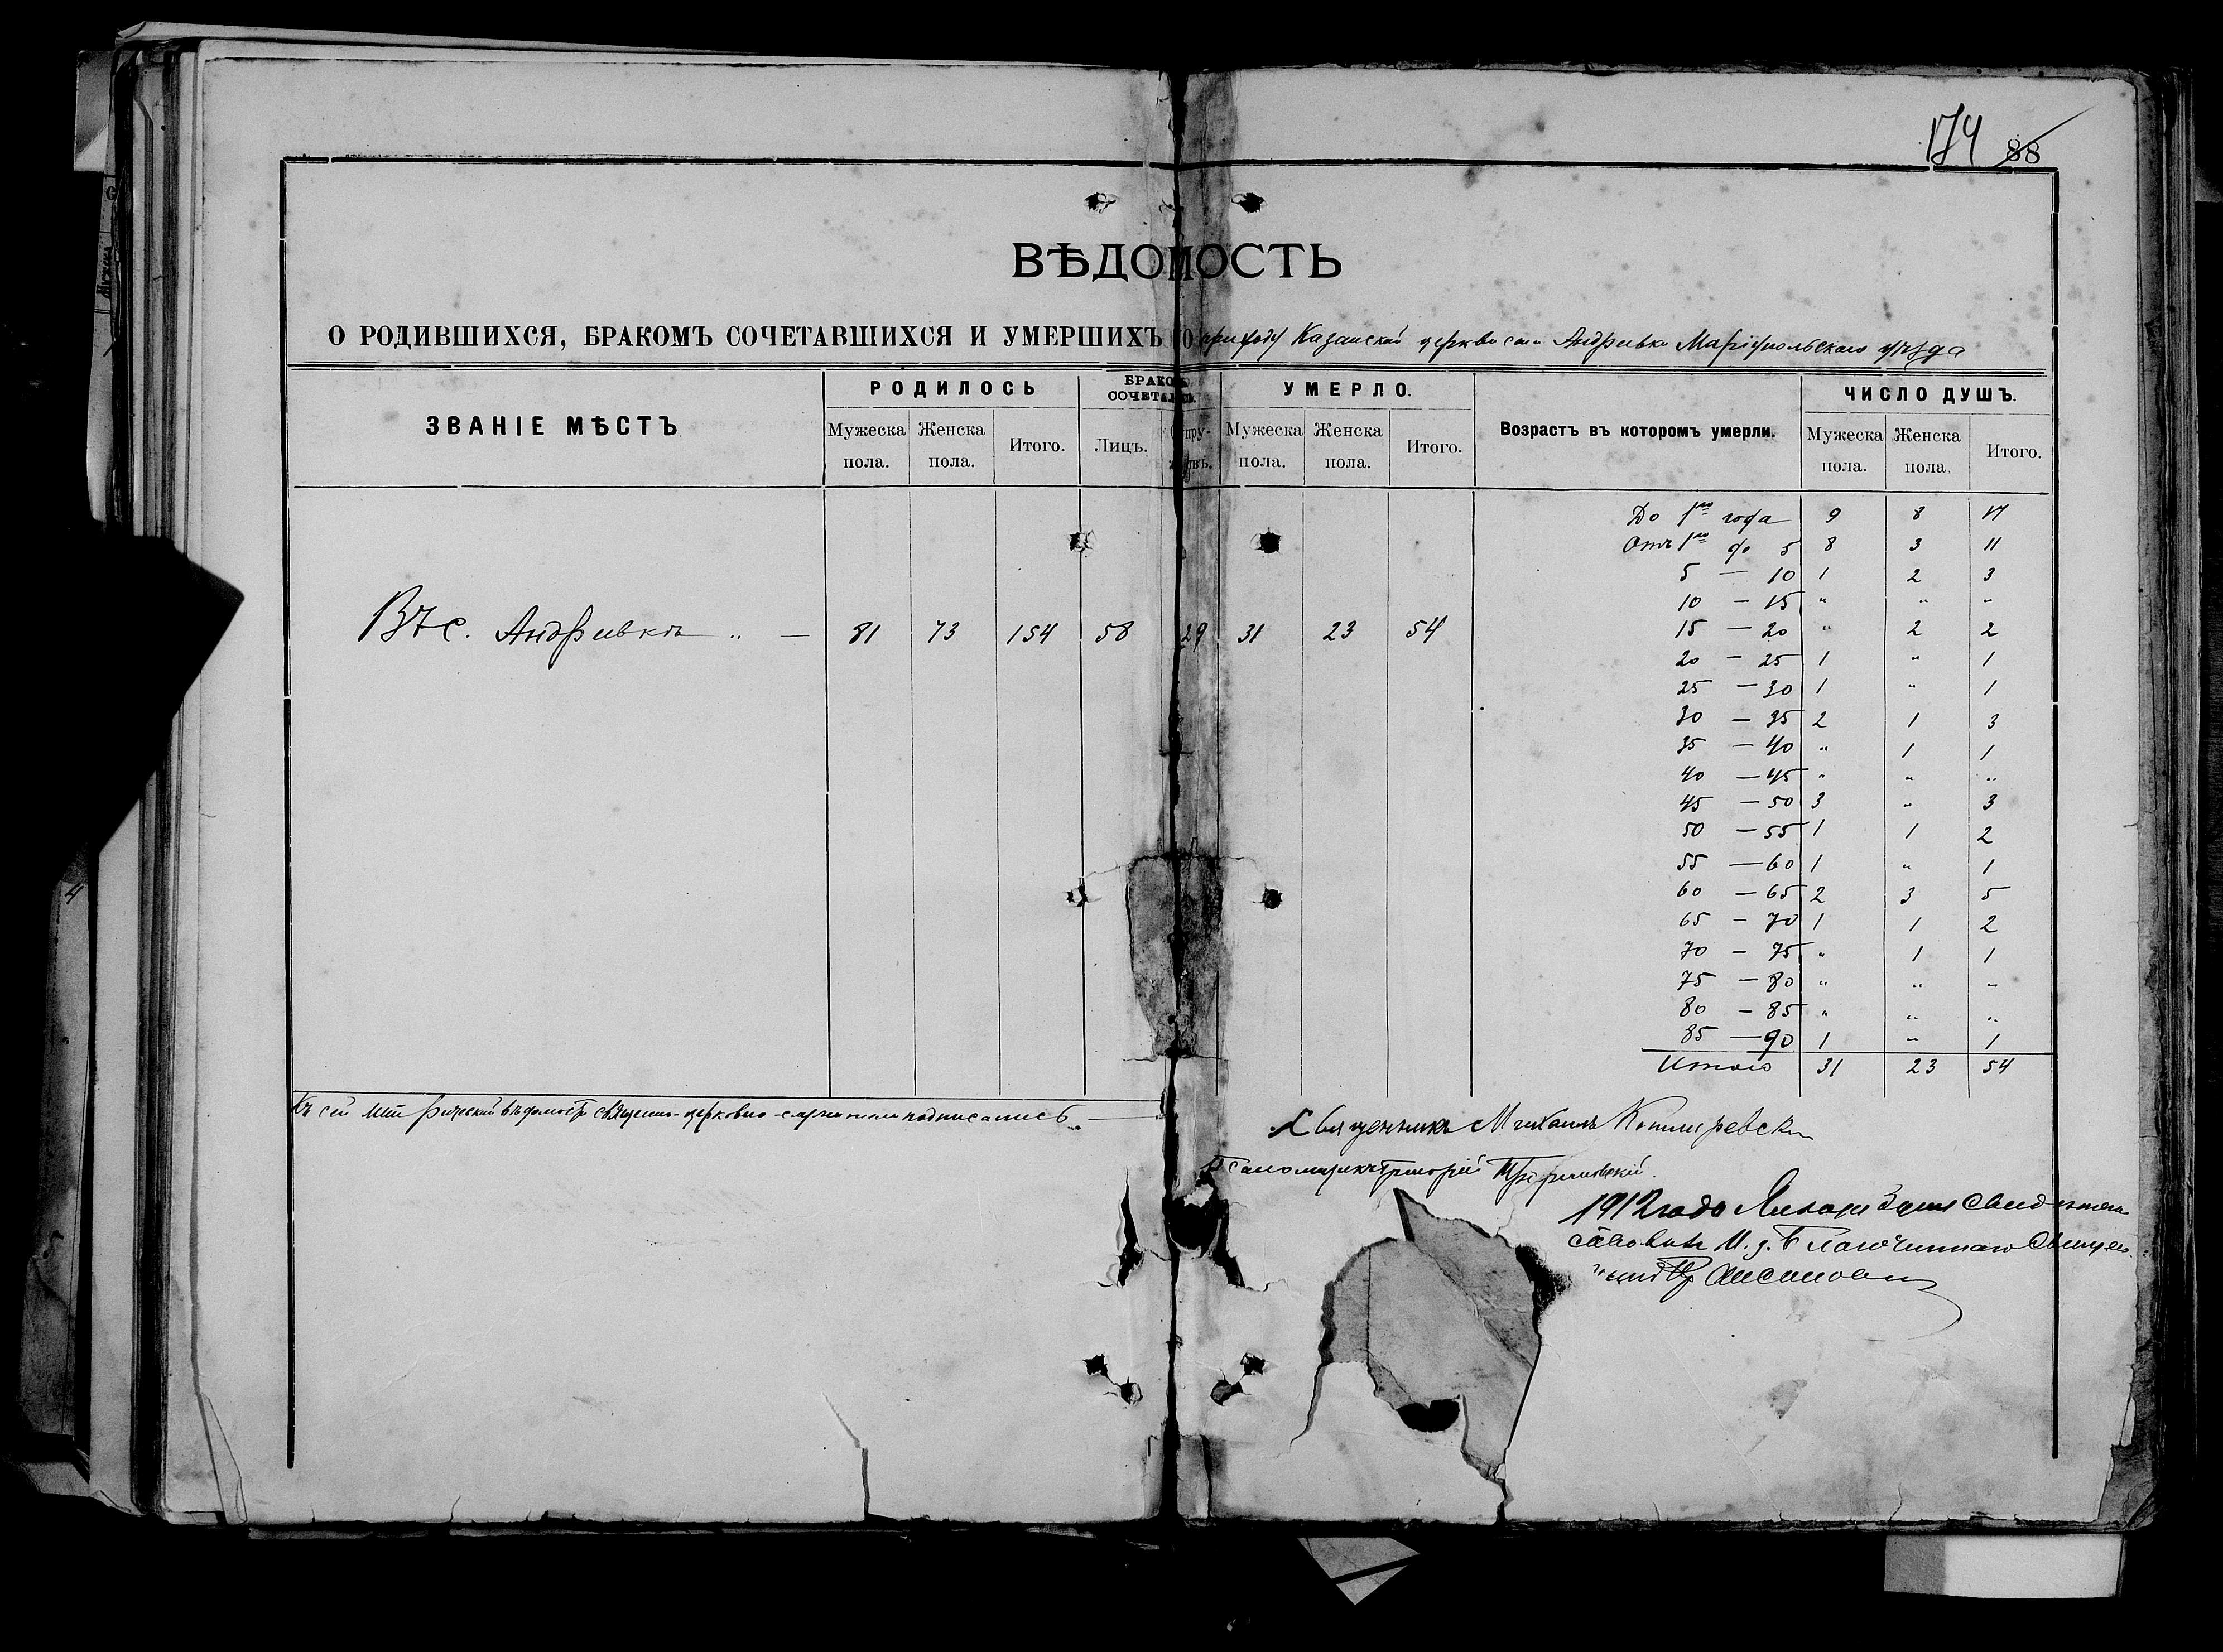 174 88
ВѢДОМОСТЬ
О РОДИВШИХСЯ, БРАКОМЪ СОЧЕТАВШИХСЯ И УМЕРШИХЪ приходу Казанской церкви села Андреевки Маріупольскаго уѣзда
ЗВАНІЕ МѢСТЪ
РОДИЛОСЬ
Мужеска пола.
Женска пола.
Итого.
БРАКОМЪ СОЧЕТАЛОСЬ.
Лицъ.
Супружествъ.
УМЕРЛО.
Мужеска пола.
Женска пола.
Итого.
Возрастъ въ которомъ умерли.
ЧИСЛО ДУШЪ.
Мужеска пола.
Женска пола.
Итого.
Въ с. Андреевкѣ „ — 81 73 154 58 29 31 23 54
До 1го года 9 8 17
Отъ 1го до 5 8 3 11
5 — 10 1 2 3
10 — 15 „ „ „
15 — 20 „ 2 2
20 — 25 1 „ 1
25 — 30 1 „ 1
30 — 35 2 1 3
35 — 40 „ 1 1
40 — 45 „ „ „
45 — 50 3 „ 3
50 — 55 1 1 2
55 — 60 1 „ 1
60 — 65 2 3 5
65 — 70 1 1 2
70 — 75 „ 1 1
75 — 80 „ „ „
80 — 85 „ „ „
85 — 90 1 „ 1
Итого 31 23 54
Къ сей метрической вѣдомости священно-церковно-служители подписались
Священникъ Михаилъ Котляревскій
Псаломщикъ Григорій
1912 года Января дня Свидѣтель
ствовалъ И. д. Благочиннаго Священ
никъ